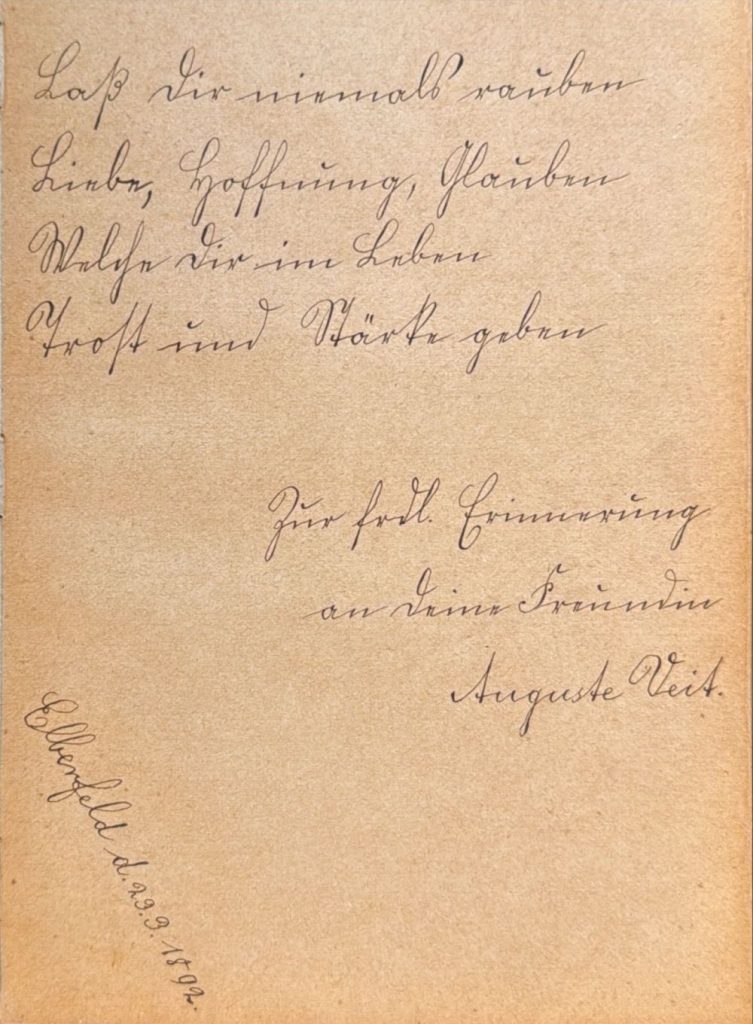 Laß Dir niemals rauben
Liebe, Hoffnung, Glauben
Welche Dir im Leben
Trost und Stärke geben
Zur frdl. Erinnerung
an Deine Freundin
Auguste Veit.
Elberfeld d. 29.3.1892.